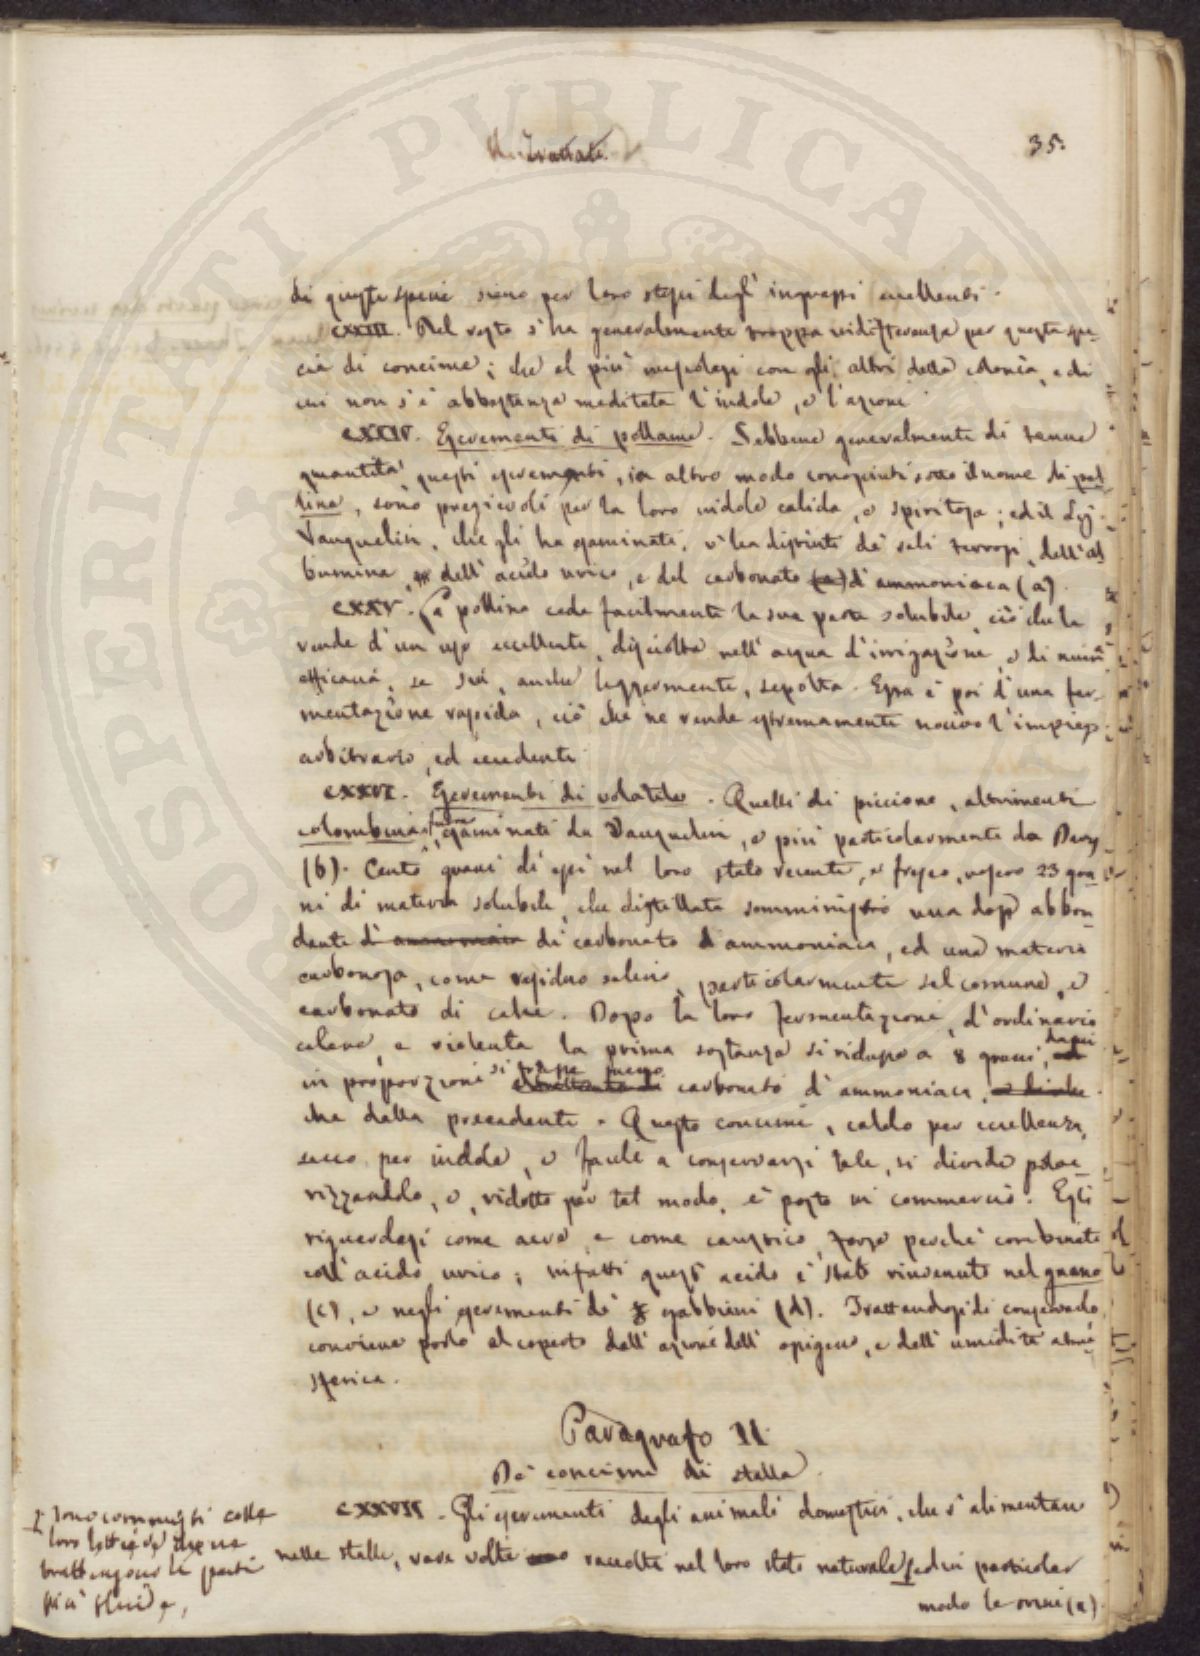 35.
di queste specie sieno per loro stessi degl' ingrassi eccellenti.
CXXIII. Nel resto s'ha generalmente troppa indifferenza per questa spe-
cie di concime; che al più mescolasi con gli altri della colonia, e di
cui non s'è abbastanza meditata l'indole, e l'azione.
CXXIV. Escrementi di pollame. Sebbene generalmente di tenue
quantità questi escrementi, in altro modo conosciuti sotto il nome di pol-
lina, sono pregievoli per la loro indole calida, e spiritosa; ed il Sig.
Vauquelin, che gli ha esaminati, v'ha distinti de' sali terrosi, dell'al-
bumina, dell' acido urico, e del carbonato (a) d'ammoniaca (a).
CXXV. La pollina cede facilmente la sua parte solubile, ciò che la
rende d'un uso eccellente, disciolta nell' acqua d'irrigazione, e di minor
efficacia, se sia, anche leggermente, sepolta. Essa è poi d'una fer-
mentazione rapida, ciò che ne rende estremamente nocivo l'impiego
arbitrario, ed eccedente.
CXXVI. Escrementi di volatile. Quelli di piccione, altrimenti
colombina, furono esaminati da Vauquelin, e più particolarmente da Davy
(b). Cento grani di essi nel loro stato recente, e fresco, resero 23 gra-
ni di materia solubile, che distillata somministrò una dose abbon-
dante d' ammoniaca di carbonato d'ammoniaca, ed una materia
carbonosa, come residuo salino, particolarmente sal comune, e
carbonato di calce. Dopo la loro fermentazione, d'ordinario
celere, e violenta la prima sostanza si ridusse a 8 grani,
in proporzione si trasse meno carbonato d'ammoniaca,
che dalla precedente. Questo concime, caldo per eccellenza,
secco per indole, e facile a conservarsi tale, si divide polve-
rizzandolo, e, ridotto per tal modo, è posto in commercio. Egli
riguardasi come acre, e come caustico, forse perché combinato
coll' acido urico; infatti quest' acido è stato rinvenuto nel guano
(c), e negli escrementi de' gabbiani (d). Trattandosi di conservarlo,
conviene porlo al coperto dall' azione dell' ossigeno, e dell' umidità atmo-
sferica.
Paragrafo II
De' concimi di stalla.
CXXVII. Gli escrementi degli animali domestici, che s'alimentano
nelle stalle, rare volte raccolti nel loro stato naturale ed in particolar
modo le orine (a)
sono commisti colle
loro lettiere che ne
trattengono le parti
più fluide,